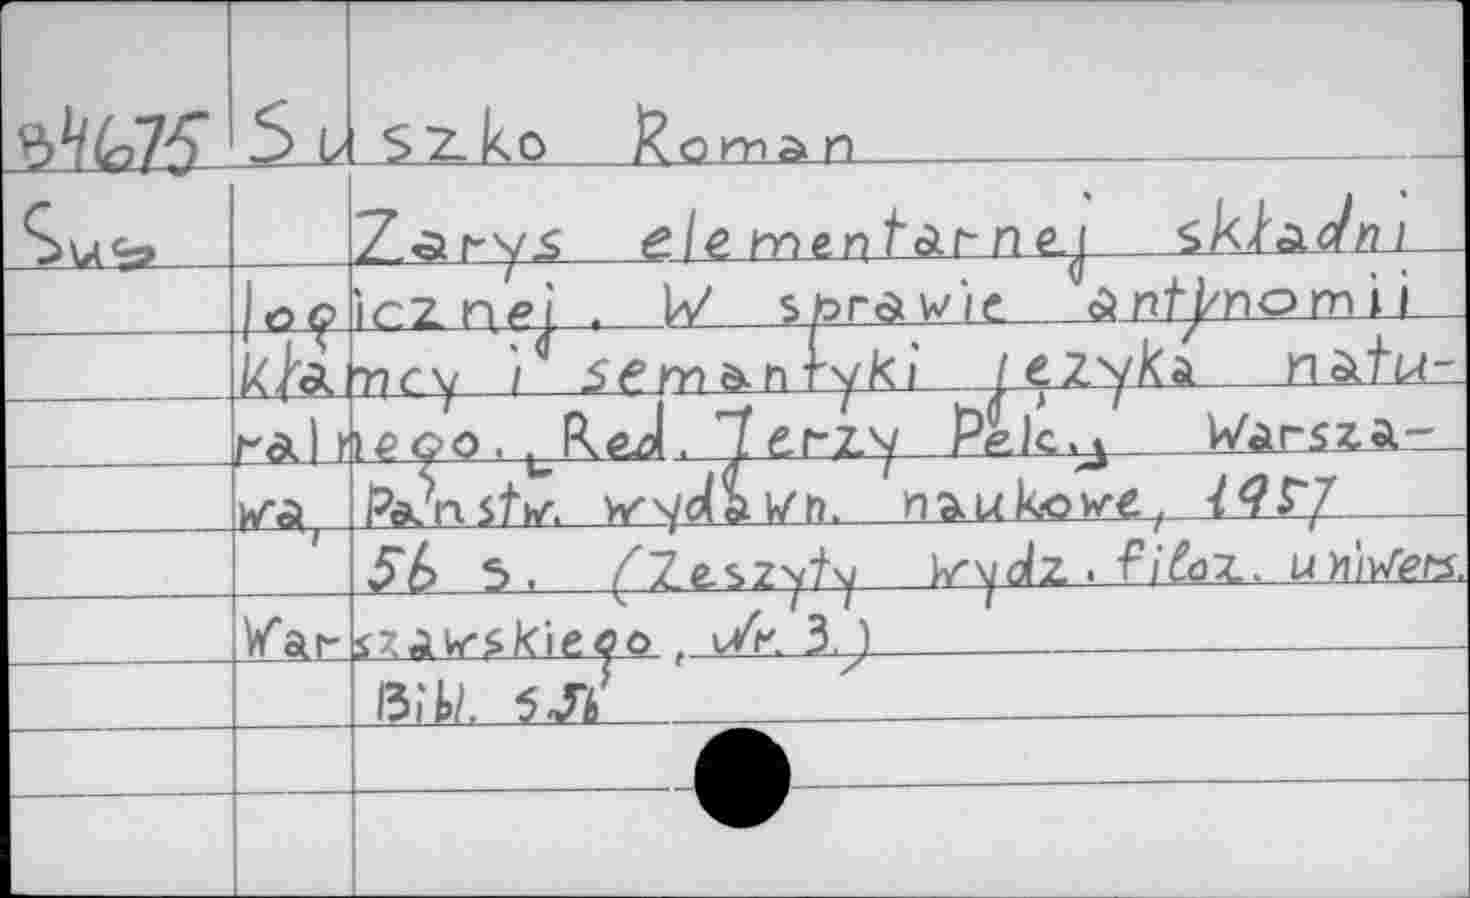 В4675 Suszko Roman
Sus Zarys elementarnej składni
logicznej. W sprawie antynomii
kłamcy i semantyki języka natu-
ralnego. [Red. Jerzy Pelc.] Warsza-
wa, Państw. wydawn. naukowe, 1957
56 s. (Zeszyty wydz. filoz. uniwers.
Warszawskiego, Nr. 3.)
Bibl. s. 56